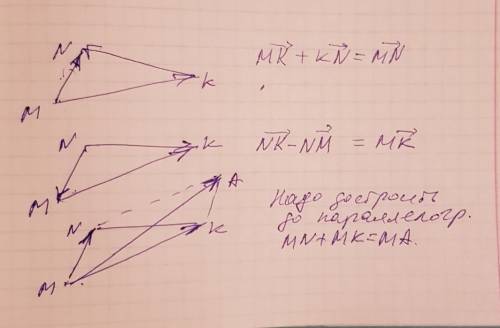 N
M
K
MK + KN = MN
N
M
K
NK - NM = MK
N
M
K
A
Надо достроить
до параллелогр.
MN+MK=MA.